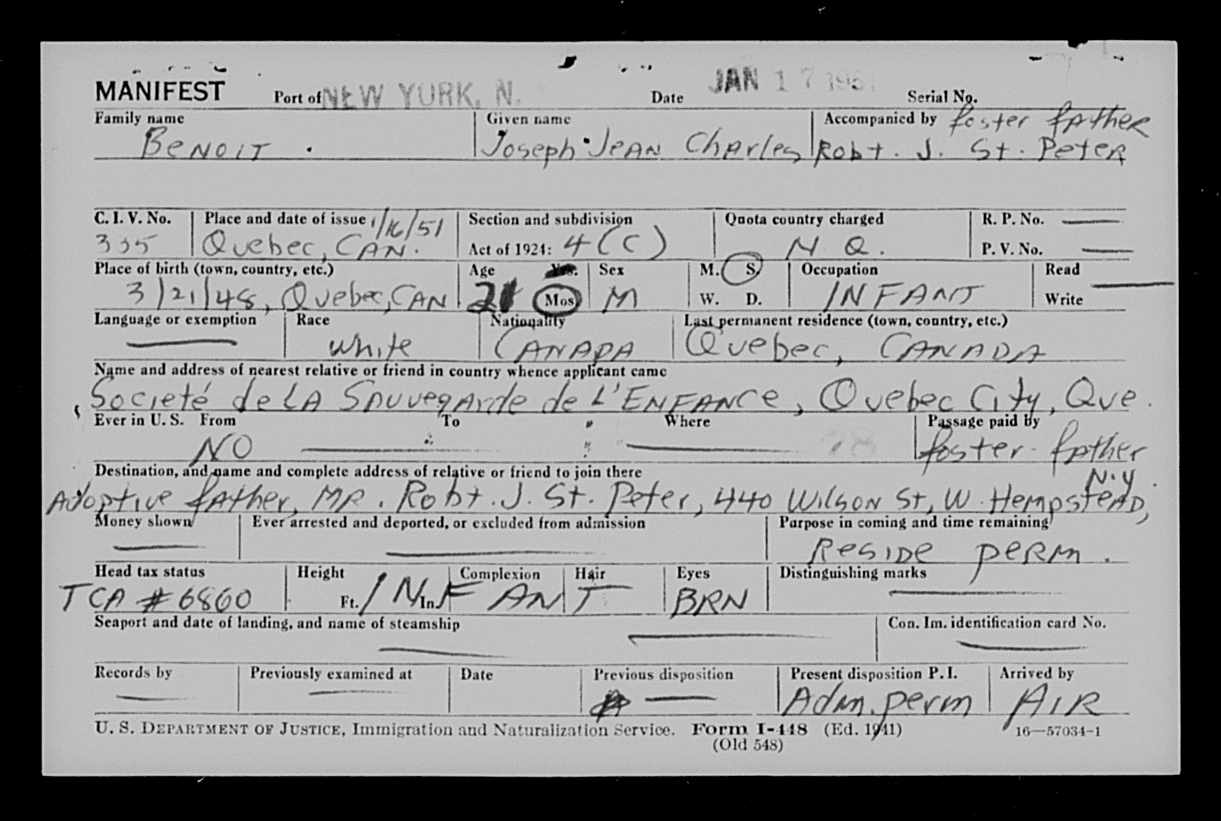 MANIFEST Port of NEW YORK, N. Date JAN 17 195 Serial No.
Family name Given name Accompanied by foster father
BENOIT . Joseph JEAN Charles Robt. J. St. Peter
C. I. V. No. Place and date of issue 1/16/51 Section and subdivision Quota country charged R. P. No. —
335 Quebec, CAN. Act of 1924: 4 (C) N Q. P. V. No. —
Place of birth (town, country, etc.) Age Yrs. Sex M. S. Occupation Read
3/21/48, Quebec, CAN Mos M W. D. INFANT Write —
Language or exemption Race Nationality Last permanent residence (town, country, etc.)
— White CANADA Quebec, CANADA
Name and address of nearest relative or friend in country whence applicant came
Societé de LA SAuvegArde de L'ENFANCE, Quebec City, Que.
Ever in U. S. From To Where Passage paid by
NO — — foster-father
Destination, and name and complete address of relative or friend to join there N.Y.
Adoptive father, MR. Robt. J. St. Peter, 440 Wilson St, W. Hempstead,
Money shown Ever arrested and deported, or excluded from admission Purpose in coming and time remaining
— — Reside perm.
Head tax status Height Complexion Hair Eyes Distinguishing marks
TCA #6860 Ft. In. INFANT BRN —
Seaport and date of landing, and name of steamship Con. Im. identification card No.
— — —
Records by Previously examined at Date Previous disposition Present disposition P. I. Arrived by
— — — Adm. perm AIR
U. S. DEPARTMENT OF JUSTICE, Immigration and Naturalization Service. Form I-448 (Ed. 1941) 16—57034-1
(Old 548)